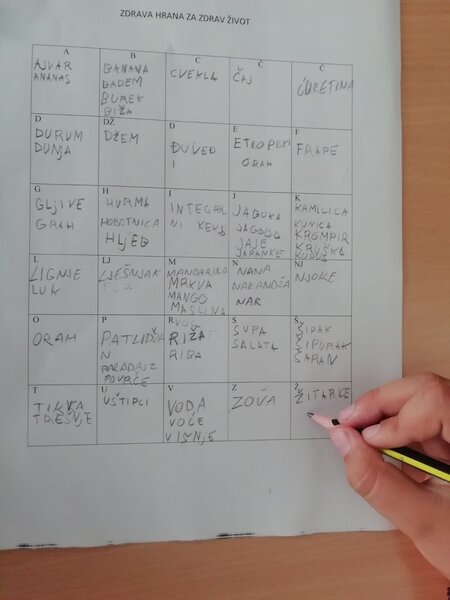 ZDRAVA HRANA ZA ZDRAV ŽIVOT
A
AJVAR
ANANAS
B
BANANA
BADEM
BUREK
BIŽA
C
CVEKLA
Č
ČAJ
Ć
ĆURETINA
D
DURUM
DUNJA
DŽ
DŽEM
Đ
ĐUVEĐ
I
E
ETIOPLKI
ORAH
F
FRAPE
G
GLJIVE
GRAH
H
HURMA
HOBOTNICA
HLJEB
I
INTEGRAL
NI KEKS
J
JABUKA
JAGODA
JAJE
JAPANKE
K
KAMILICA
KUNICA
KROMPIR
KRUŠKA
L
LIGNJE
LUK
LJ
LJEŠNJAK
M
MANDARINA
MRKVA
MANGO
MASLINA
N
NANA
NARANDŽA
NAR
NJ
NJOKE
O
ORAH
P
PATLIDŽA
N
PARADAJZ
POVRĆE
R
RIŽA
RIBA
S
SUPA
SALATA
Š
ŠIPAK
ŠIPURAK
ŠARAN
T
TIKVA
TREŠNJE
U
UŠTIPCI
V
VODA
VOĆE
VIŠNJE
Z
ZOVA
Ž
ŽITARKE